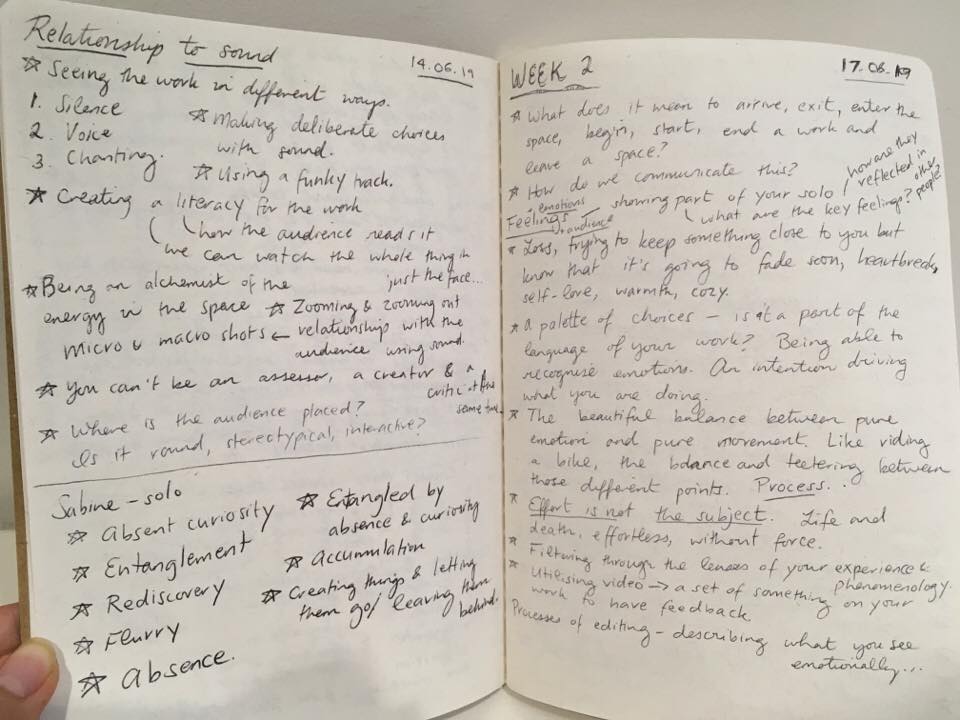 Relationship to sound
14.06.19
☆ Seeing the work in different ways.
1. Silence
2. Voice
3. Chanting.
☆ Making deliberate choices
with sound.
☆ Using a funky track.
☆ Creating a literacy for the work
how the audience reads it
we can watch the whole thing in
just the face...
☆ Being an alchemist of the
energy in the space
☆ Zooming & zooming out
micro & macro shots ← relationship with the
audience using sound.
☆ You can't be an assessor, a creator & a
critic at the
same time.
☆ Where is the audience placed?
Is it round, stereotypical, interactive?
Sabine - solo
☆ Absent curiosity
☆ Entanglement
☆ Rediscovery
☆ Flurry
☆ Absence.
☆ Entangled by
absence & curiosity
☆ Accumulation
☆ Creating things & letting
them go/ leaving them
behind.
WEEK 2
17.06.19
☆ What does it mean to arrive, exit, enter the
space, begin, start, end a work and
leave a space?
☆ How do we communicate this?
how are they
reflected in
other
people?
Feelings + emotions → audience - showing part of your solo /
what are the key feelings?
☆ Loss, trying to keep something close to you but
know that it's going to fade soon, heartbreak,
self-love, warmth, cozy.
☆ A palette of choices - is it a part of the
language of your work? Being able to
recognise emotions. An intention driving
what you are doing.
☆ The beautiful balance between pure
emotion and pure movement. Like riding
a bike, the balance and teetering between
those different points. Process...
☆ Effort is not the subject. Life and
death, effortless, without force.
☆ Filtering through the lenses of your experience &
phenomenology.
☆ Utilising video → a set of something on your
work to have feedback
Processes of editing - describing what you see
emotionally...